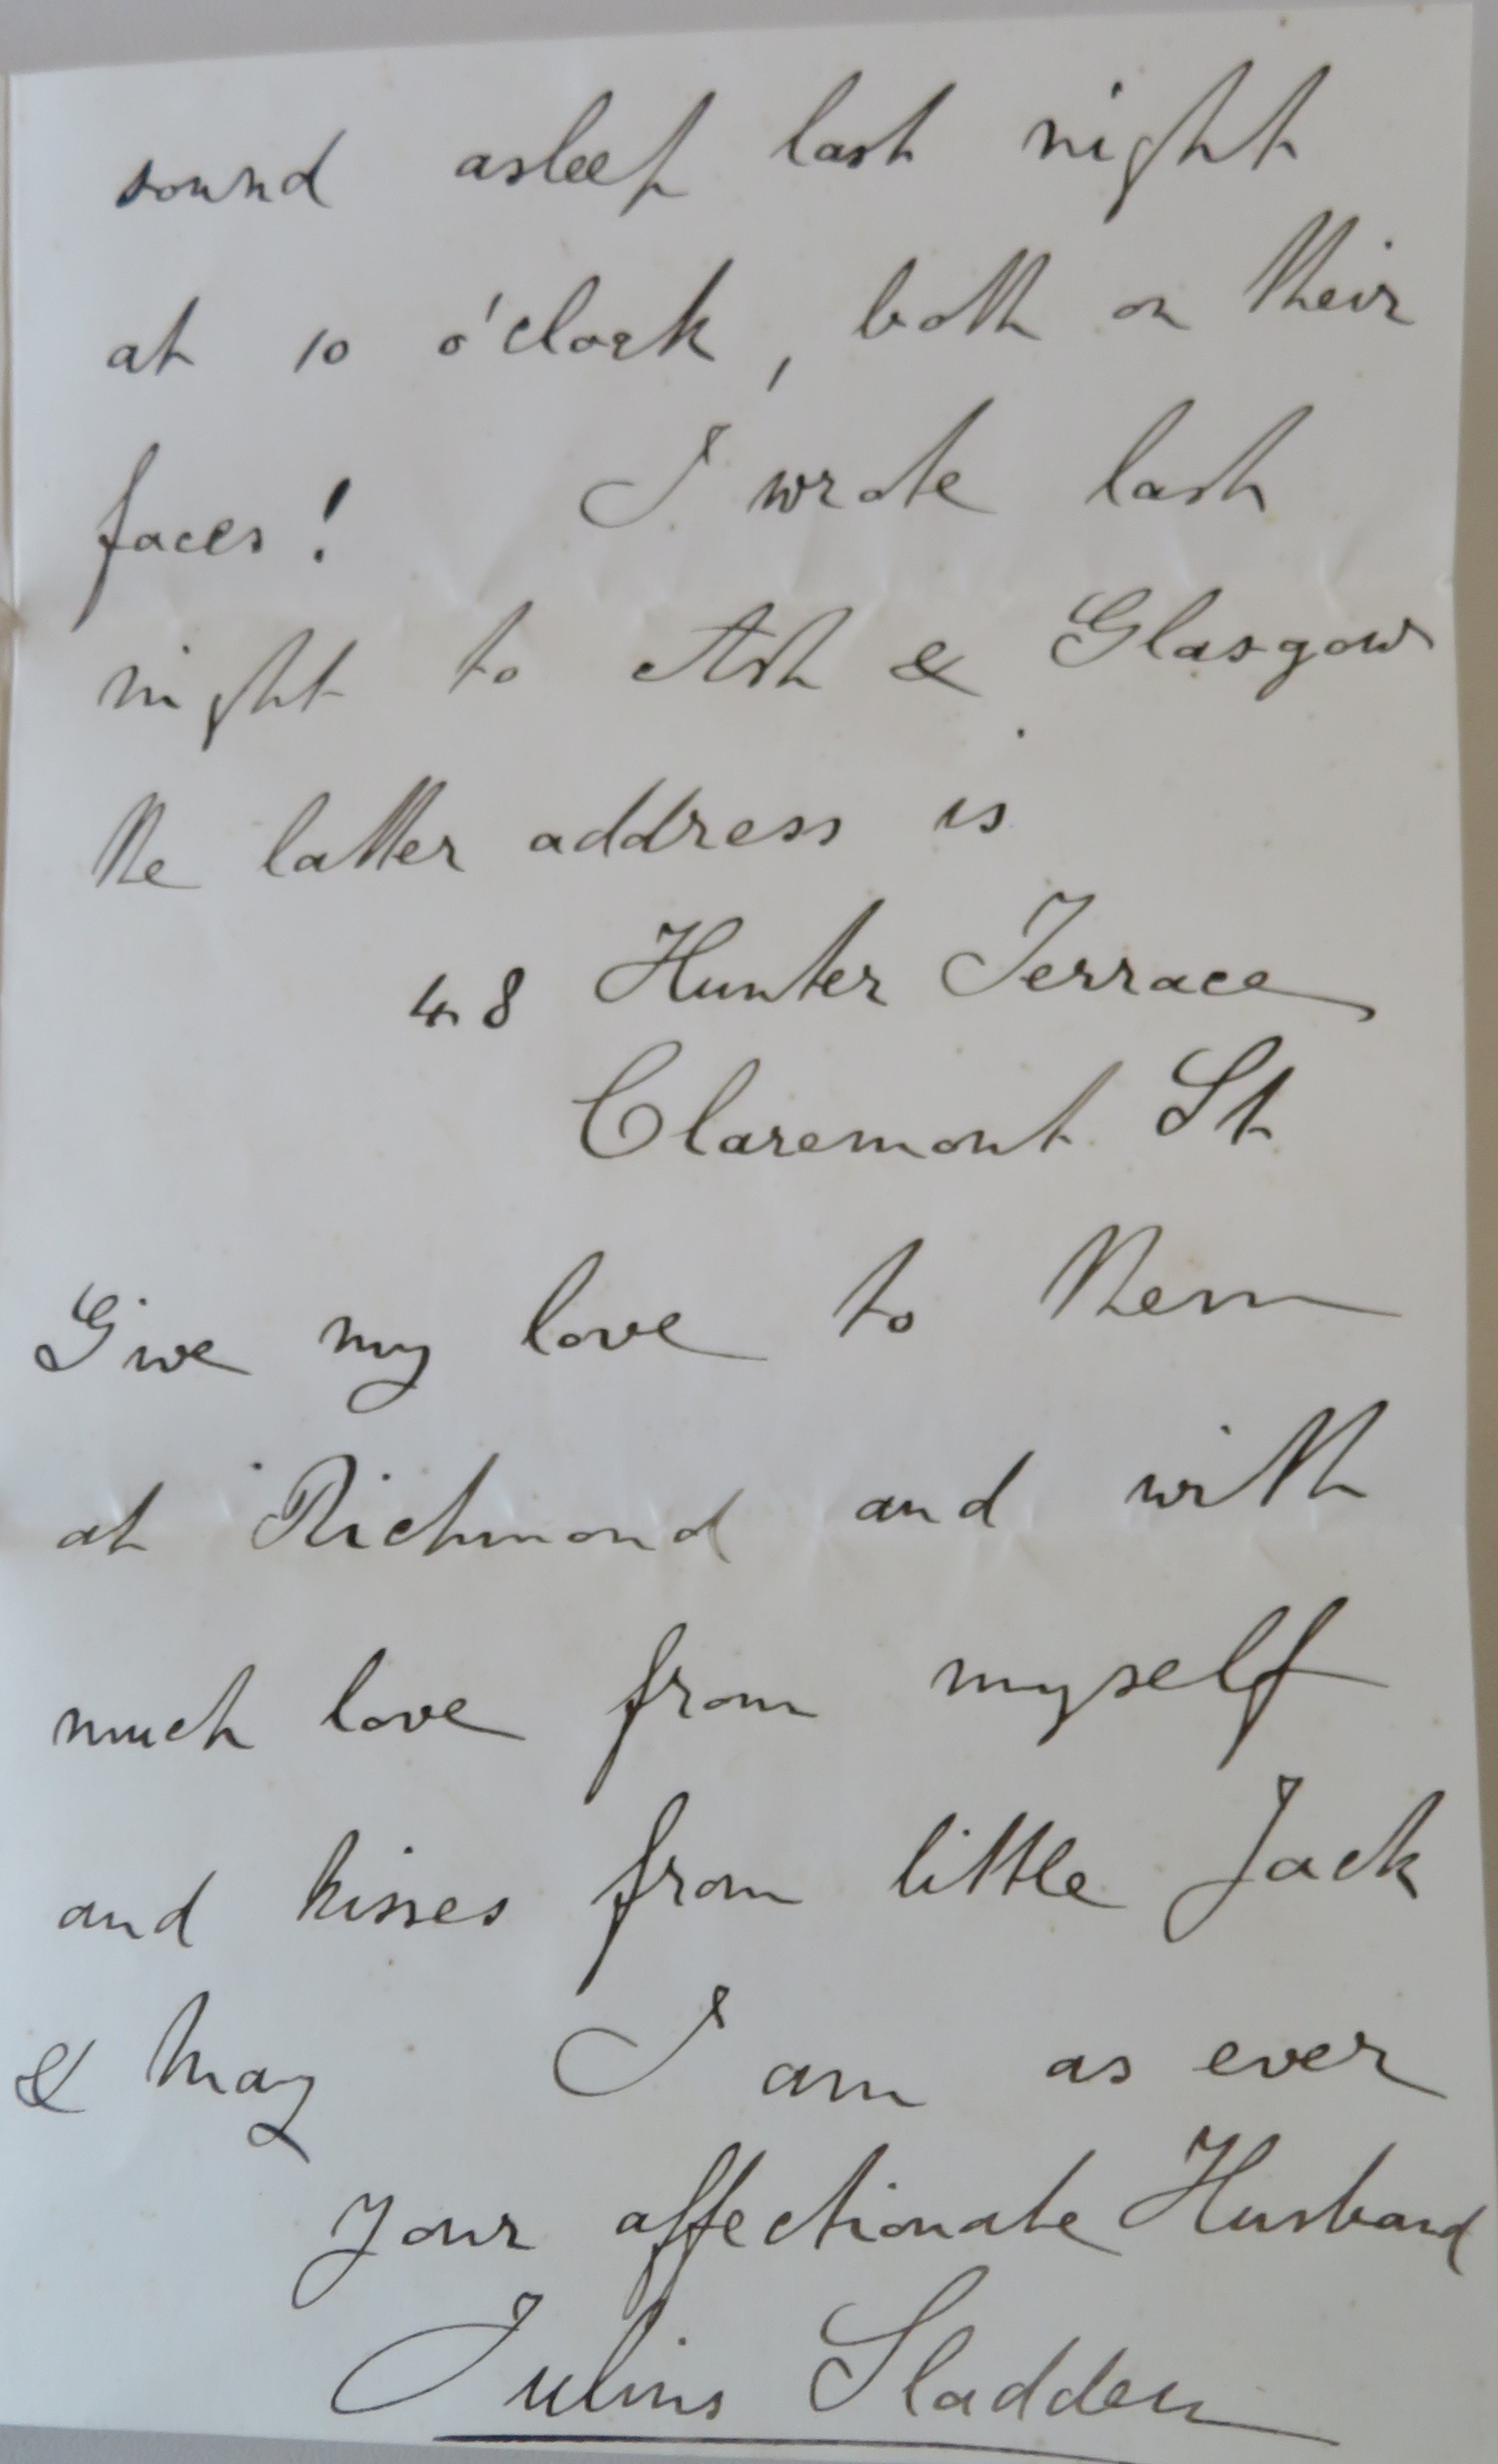 sound asleep last night
at 10 o'clock, both on their
faces! I wrote last
night to Ash & Glasgow.
the latter address is
48 Hunter Terrace
Claremont St
Give my love to them
at Richmond and with
much love from myself
and kisses from little Jack
& May I am as ever
your affectionate Husband
Julius Sladden